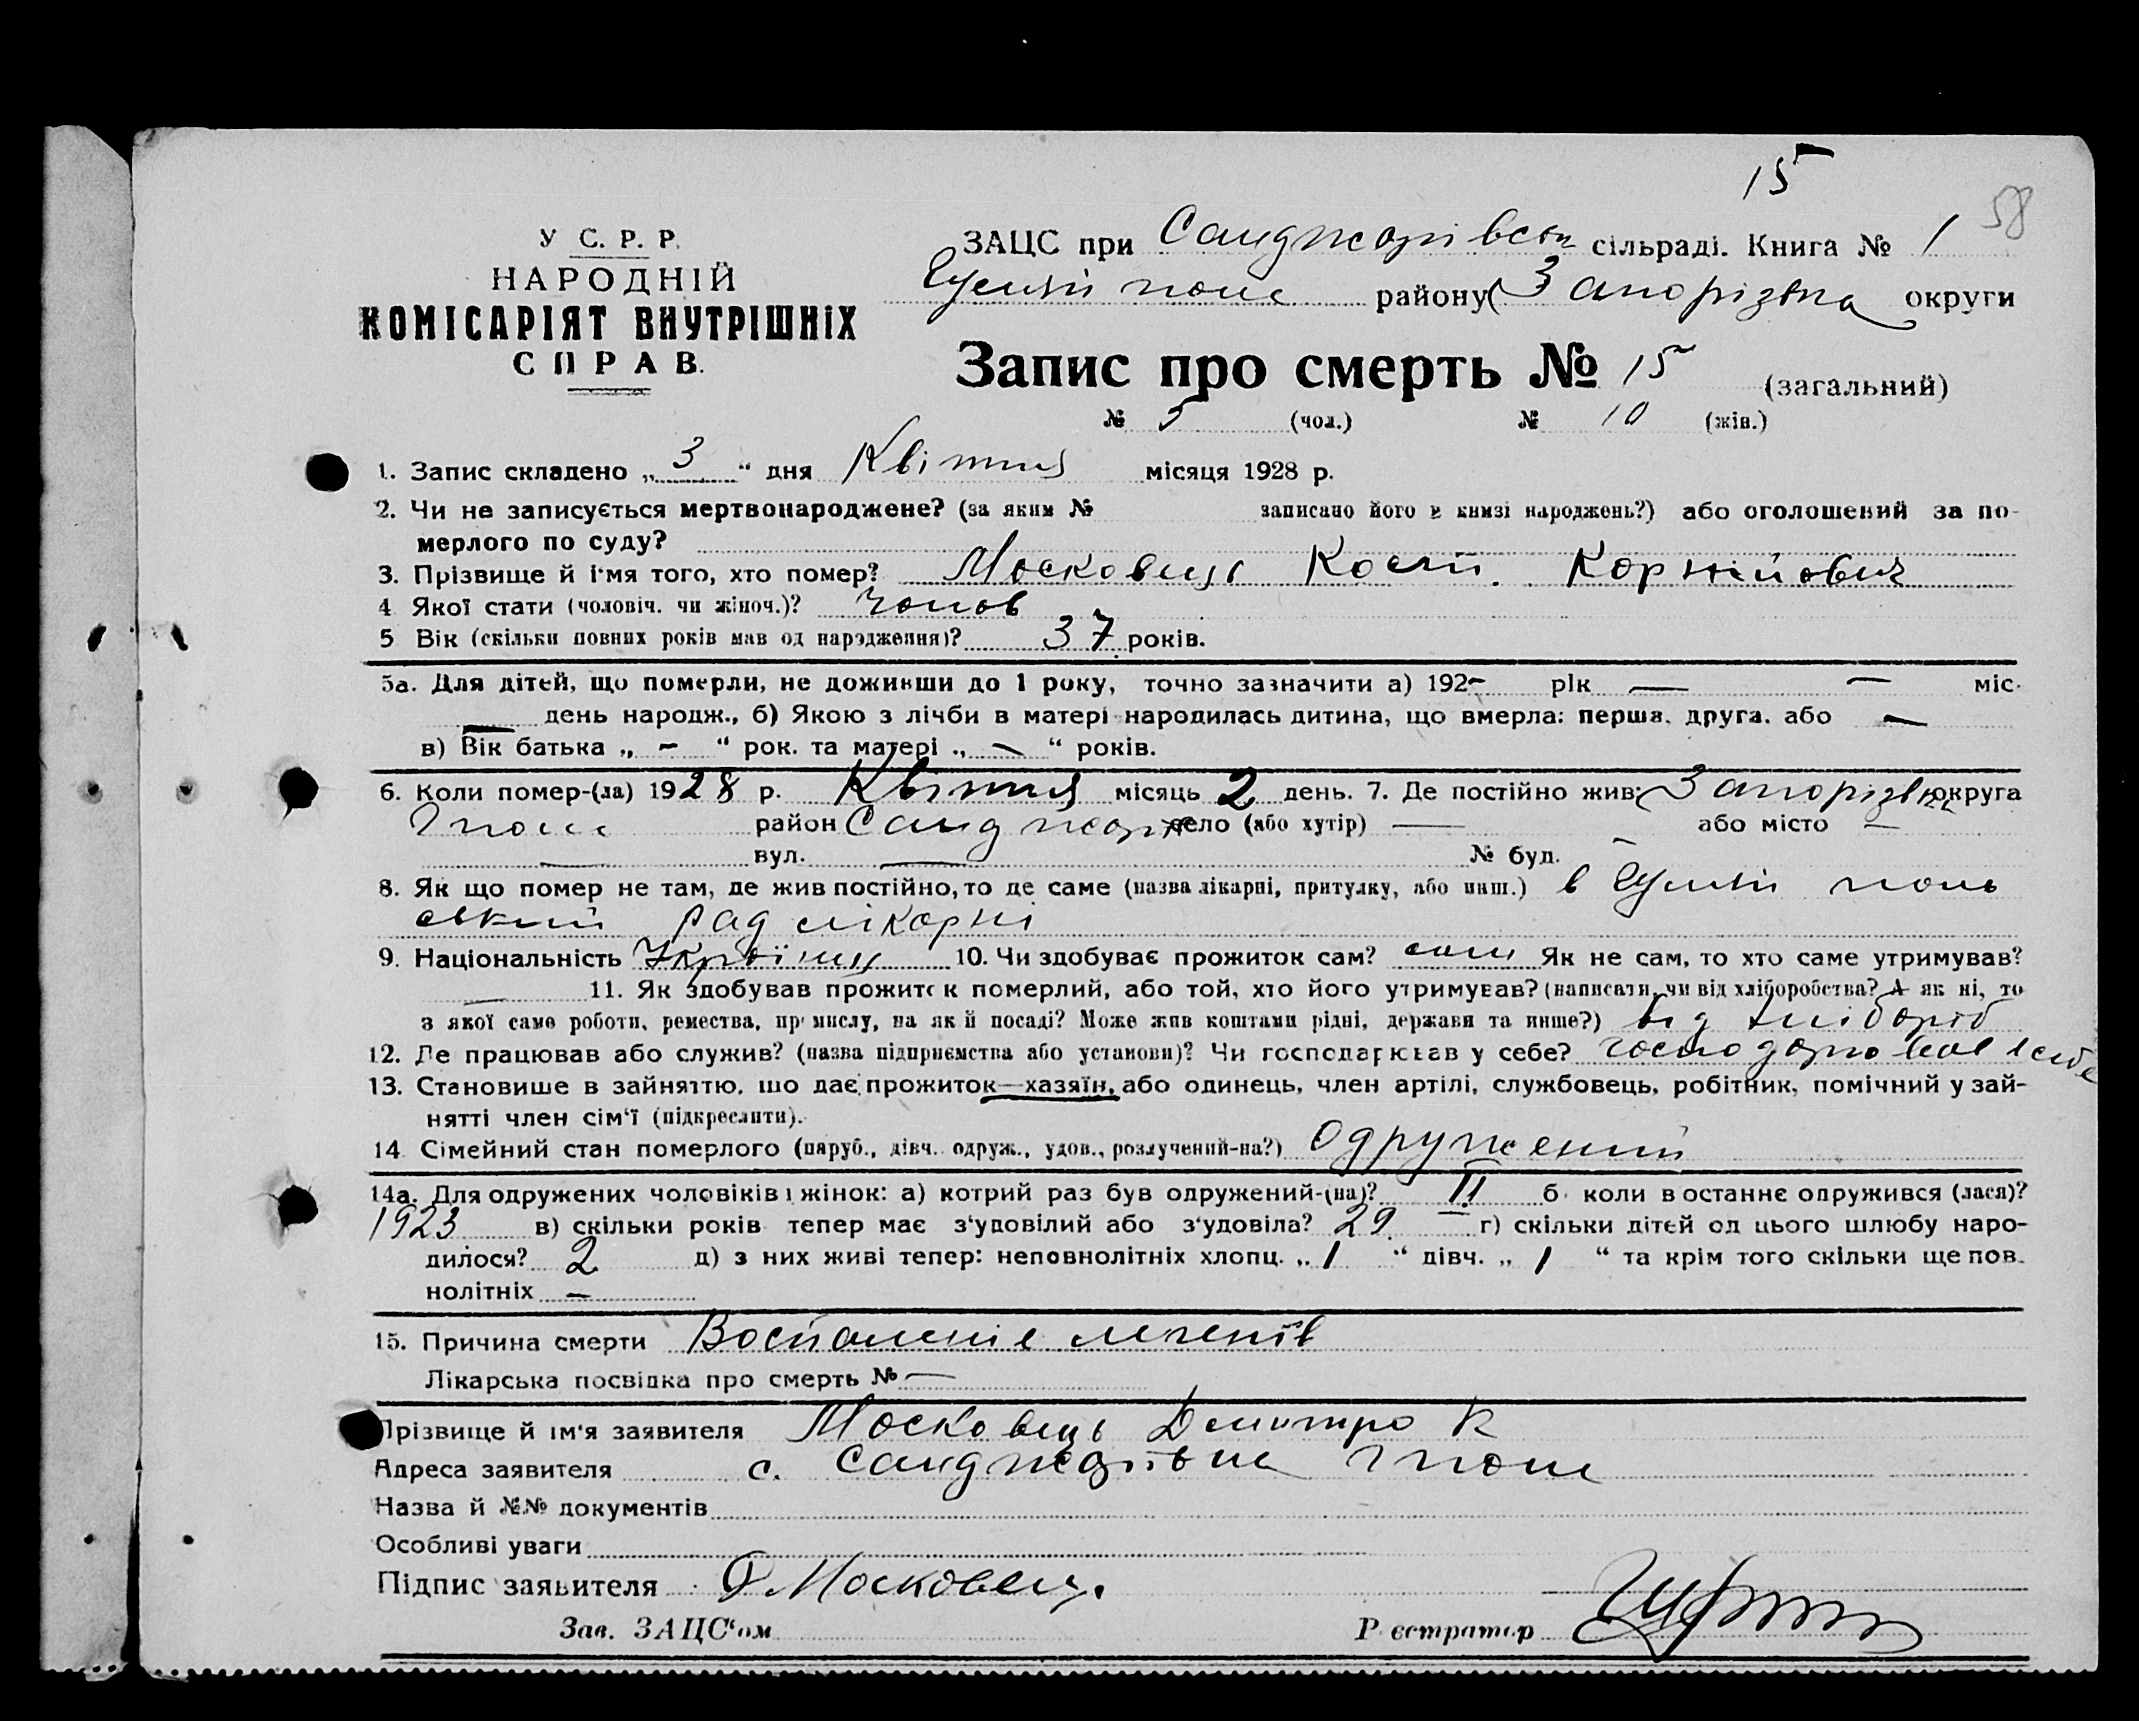 15
58
У С. Р. Р.
НАРОДНІЙ
КОМІСАРІЯТ ВНУТРІШНІХ
СПРАВ.
ЗАЦС при Санджарівськ сільраді. Книга № 1
Гуляй поле району Запорізька округи
Запис про смерть № 15 (загальний)
№ 5 (чол.) № 10 (жін.)
1. Запис складено „ 3 “ дня Квітня місяця 1928 р.
2. Чи не записується мертвонароджене? (за яким № записано його в книзі народжень?) або оголошений за по-
мерлого по суду?
3. Прізвище й ім'я того, хто помер? Московець Костій Корнійович
4 Якої стати (чоловіч. чи жіноч.)? чолов
5 Вік (скільки повних років мав од народження)? 37 років.
5а. Для дітей, що померли, не доживши до 1 року, точно зазначити а) 192- рік — — міс.
— день народж., б) Якою з лічби в матері народилась дитина, що вмерла: перша, друга, або —
в) Вік батька „ - “ рок. та матері „ - “ років.
6. Коли помер-(ла) 1928 р. Квітня місяць 2 день. 7. Де постійно жив: Запорізька округа
Гполе район Санджар село (або хутір) — або місто —
— вул. — № буд. —
8. Як що помер не там, де жив постійно, то де саме (назва лікарні, притулку, або инш.) в Гуляй поль
ський рад лікарні
9. Національність Українец 10. Чи здобуває прожиток сам? сам Як не сам, то хто саме утримував?
— 11. Як здобував прожиток померлий, або той, хто його утримував? (написати, чи від хліборобства? А як ні, то
з якої саме роботи, ремества, промислу, на якій посаді? Може жив коштами рідні, держави та инше?) від хлібороб
12. Де працював або служив? (назва підприємства або установи)? Чи господарював у себе? господарював в себе
13. Становище в зайняттю, що дає прожиток—хазяїн, або одинець, член артілі, службовець, робітник, помічний у зай-
нятті член сім'ї (підкреслити).
14 Сімейний стан померлого (паруб., дівч. одруж., удов., розлучений-на?) одружений
14а. Для одружених чоловіків і жінок: а) котрий раз був одружений-(на)? II б коли востаннє одружився (лася)?
1923 в) скільки років тепер має з'удовілий або з'удовіла? 29 г) скільки дітей од цього шлюбу наро-
дилося? 2 д) з них живі тепер: неповнолітніх хлопц. „ 1 “ дівч. „ 1 “ та крім того скільки ще пов-
нолітніх —
15. Причина смерти Воспаленіе легенів
Лікарська посвідка про смерть № —
Прізвище й ім'я заявителя Московець Дмитро К
Адреса заявителя с. Санджарівка Гполе
Назва й №№ документів
Особливі уваги
Підпис заявителя Д Московец.
Зав. ЗАЦС'ом Реєстратор